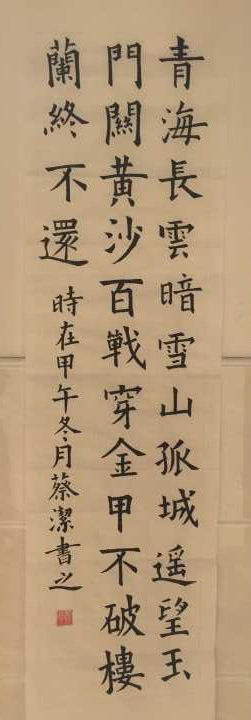 青海長雲暗雪山孤城遥望玉
門關黃沙百戰穿金甲不破樓
蘭終不還
時在甲午冬月蔡潔書之